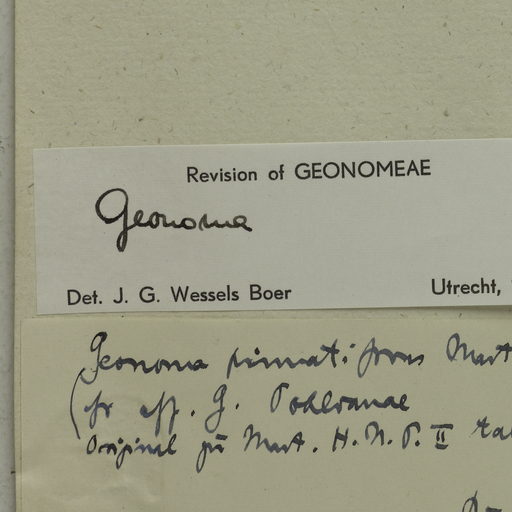 Revision of GEONOMEAE
Geonoma
Det. J. G. Wessels Boer
Utrecht,
Geonoma pinnatifrons Mart
aff. G. Pohleanae
Original zu Mart. H. N. P. II